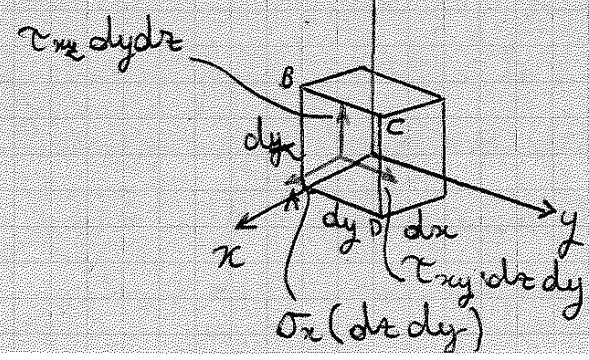 τxz dydz
B
C
A
dy D dx
x
y
τxy · dz dy
σx (dz dy)